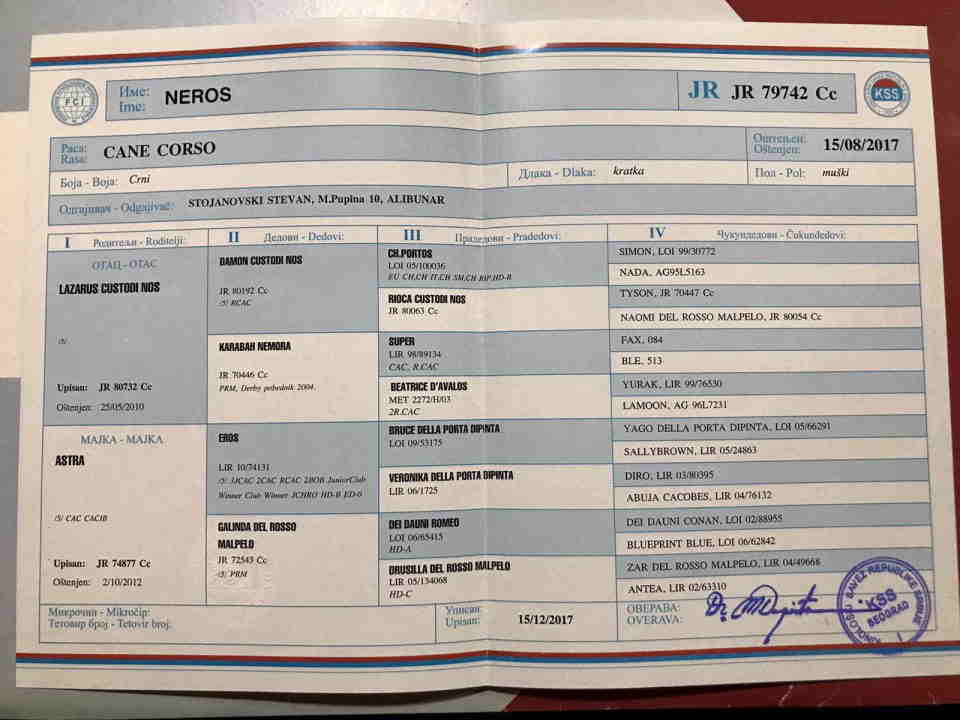 FCI
Име:
Ime:
NEROS
JR JR 79742 Cc
KSS
Раса:
Rasa:
CANE CORSO
Оштењен:
Oštenjen:
15/08/2017
Боја - Boja:
Crni
Длака - Dlaka:
kratka
Пол - Pol:
muški
Одгајивач - Odgajivač:
STOJANOVSKI STEVAN, M.Pupina 10, ALIBUNAR
I Родитељи - Roditelji:
II Дедови - Dedovi:
III Прадедови - Pradedovi:
IV Чукундедови - Čukundedovi:
ОТАЦ - OTAC
LAZARUS CUSTODI NOS
/5/
Upisan: JR 80732 Cc
Oštenjen: 25/05/2010
МАЈКА - MAJKA
ASTRA
/5/ CAC CACIB
Upisan: JR 74877 Cc
Oštenjen: 2/10/2012
DAMON CUSTODI NOS
JR 80192 Cc
/5/ RCAC
KARABAH NEMORA
JR 70446 Cc
PRM, Derby pobednik 2004.
EROS
LIR 10/74131
/5/ JJCAC 2CAC RCAC 2BOB JuniorClub
Winner Club Winner JCHRO HD-B ED-0
GALINDA DEL ROSSO
MALPELO
JR 72543 Cc
/5/ PRM
CH.PORTOS
LOI 05/100036
EU CH,CH IT,CH SM,CH RIP,HD-B
RIOCA CUSTODI NOS
JR 80063 Cc
SUPER
LIR 98/89134
CAC, R.CAC
BEATRICE D'AVALOS
MET 2272/H/03
2R.CAC
BRUCE DELLA PORTA DIPINTA
LOI 09/53175
VERONIKA DELLA PORTA DIPINTA
LIR 06/1725
DEI DAUNI ROMEO
LOI 06/65415
HD-A
DRUSILLA DEL ROSSO MALPELO
LIR 05/134068
HD-C
SIMON, LOI 99/30772
NADA, AG95L5163
TYSON, JR 70447 Cc
NAOMI DEL ROSSO MALPELO, JR 80054 Cc
FAX, 084
BLE, 513
YURAK, LIR 99/76530
LAMOON, AG 96L7231
YAGO DELLA PORTA DIPINTA, LOI 05/66291
SALLYBROWN, LIR 05/24863
DIRO, LIR 03/80395
ABUJA CACOBES, LIR 04/76132
DEI DAUNI CONAN, LOI 02/88955
BLUEPRINT BLUE, LOI 06/62842
ZAR DEL ROSSO MALPELO, LIR 04/49668
ANTEA, LIR 02/63310
Микрочип - Mikročip:
Тетовир број - Tetovir broj:
Уписан:
Upisan:
15/12/2017
ОВЕРАВА:
OVERAVA:
Dr
SAVEZ REPUBLIKE SRBIJE
KSS
BEOGRAD
1